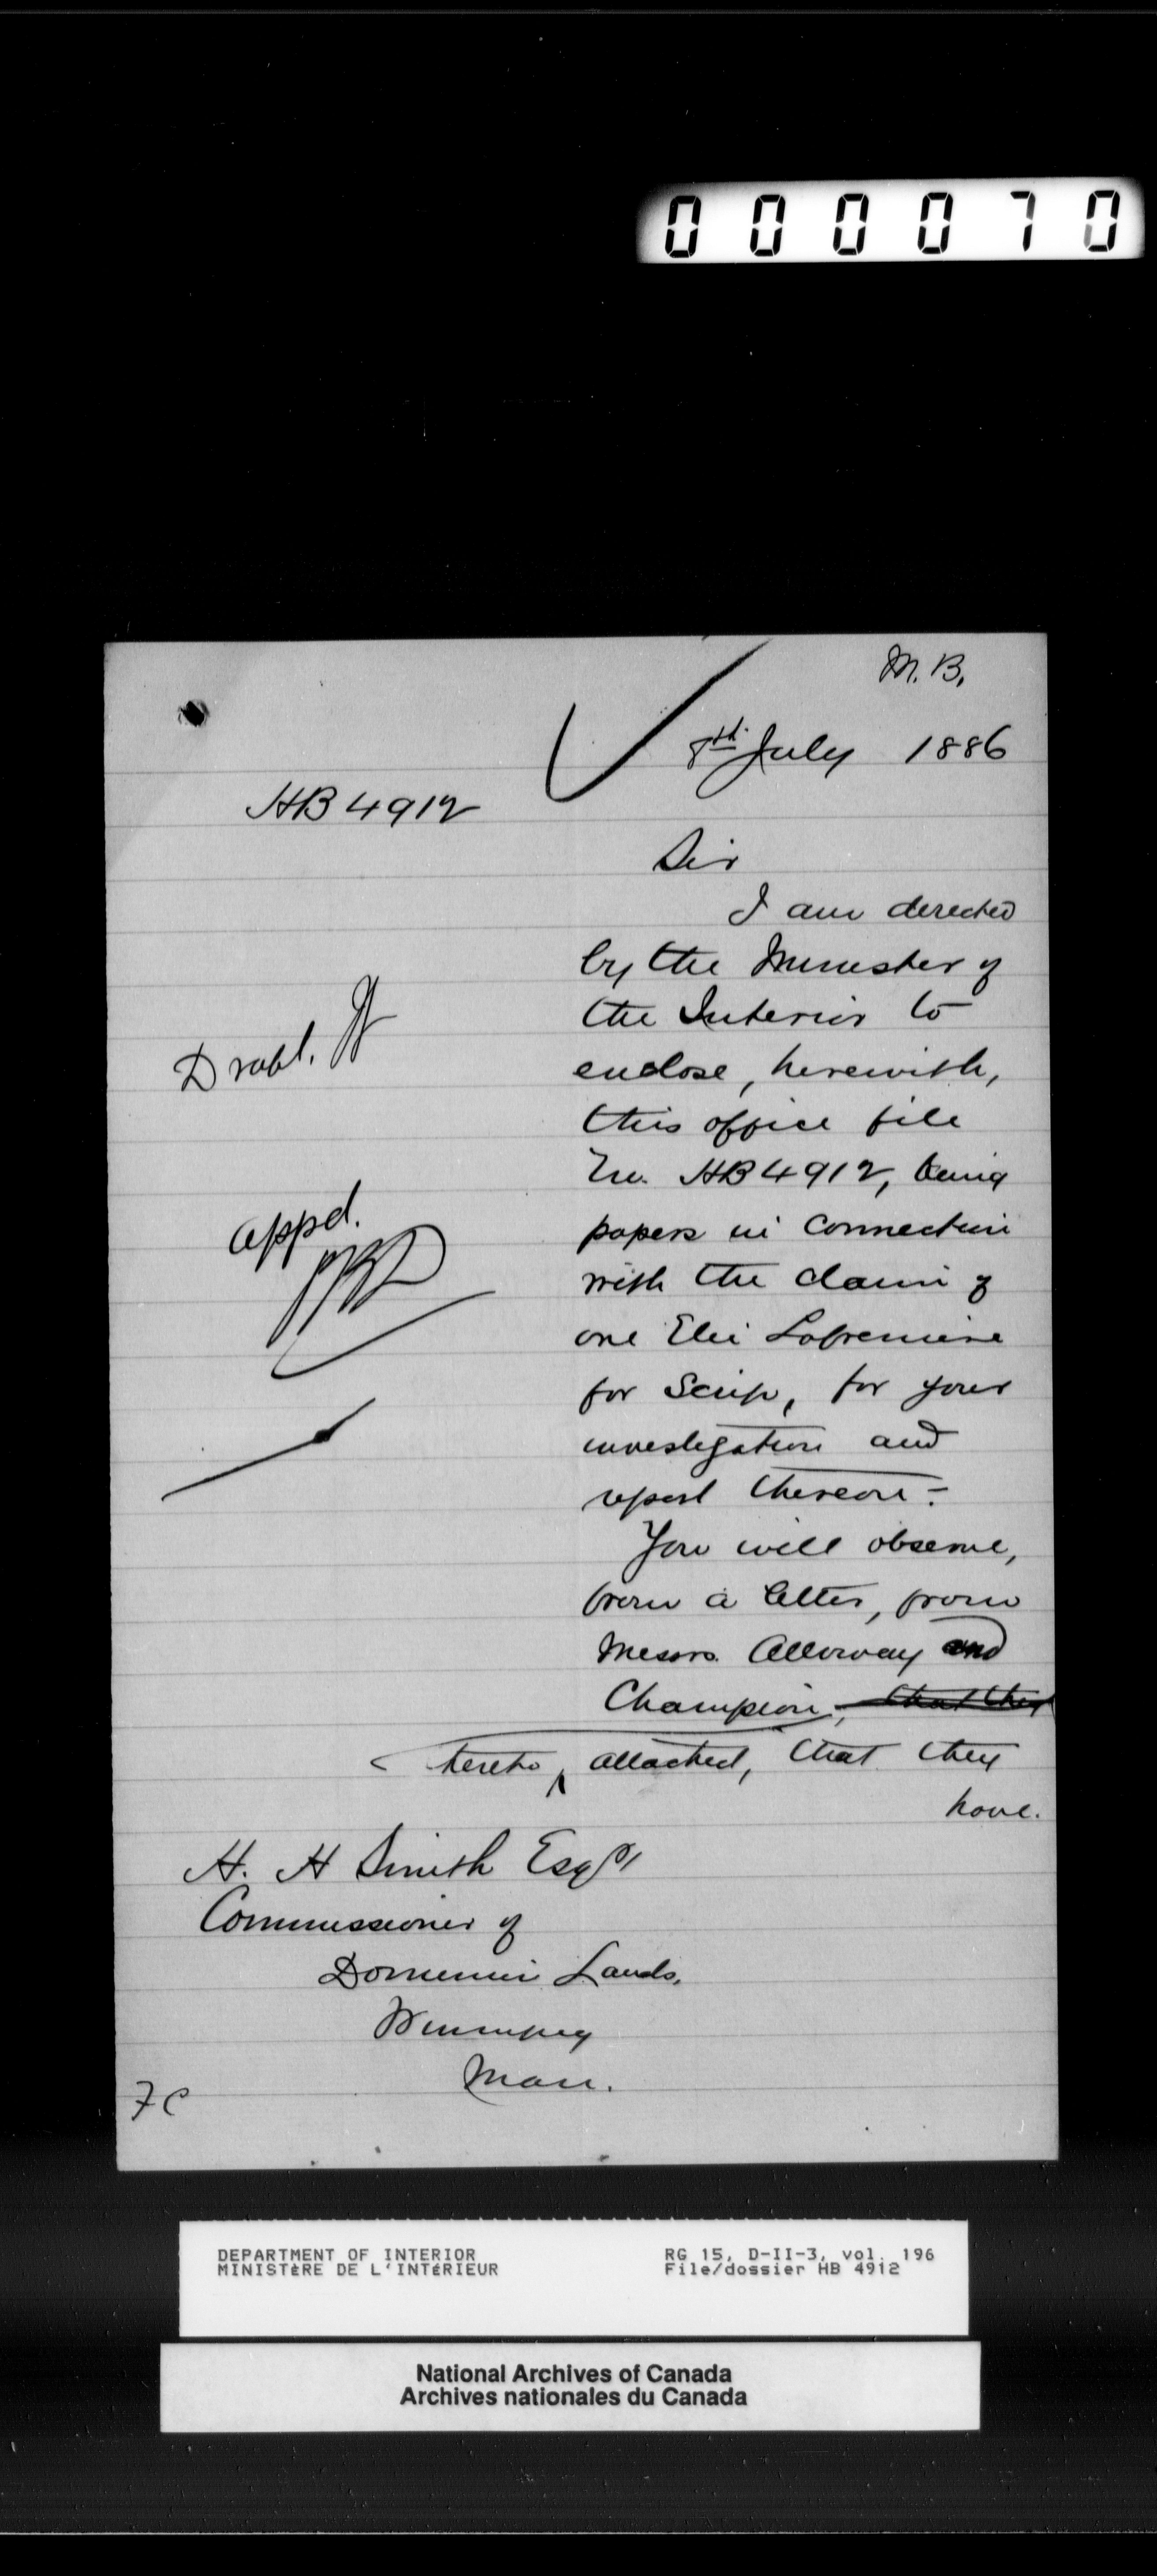 000070
M. B.
8th July 1886
HB 4912
Sir
I am directed
by the Minister of
the Interior to
enclose, herewith,
this office file
No. HB 4912, being
papers in connection
with the claim of
one Elie Lafreniere
for Scrip, for your
investigation and
report thereon.-
You will observe,
from a letter, from
Messrs. Alloway and
Champion, that they
hereto, attached, that they
have.
Draft.
appd.
H. H Smith Esqr
Commissioner of
Dominion Lands,
Winnipeg
Man.
FC
DEPARTMENT OF INTERIOR
MINISTÈRE DE L'INTÉRIEUR
RG 15, D-II-3, vol. 196
File/dossier HB 4912
National Archives of Canada
Archives nationales du Canada